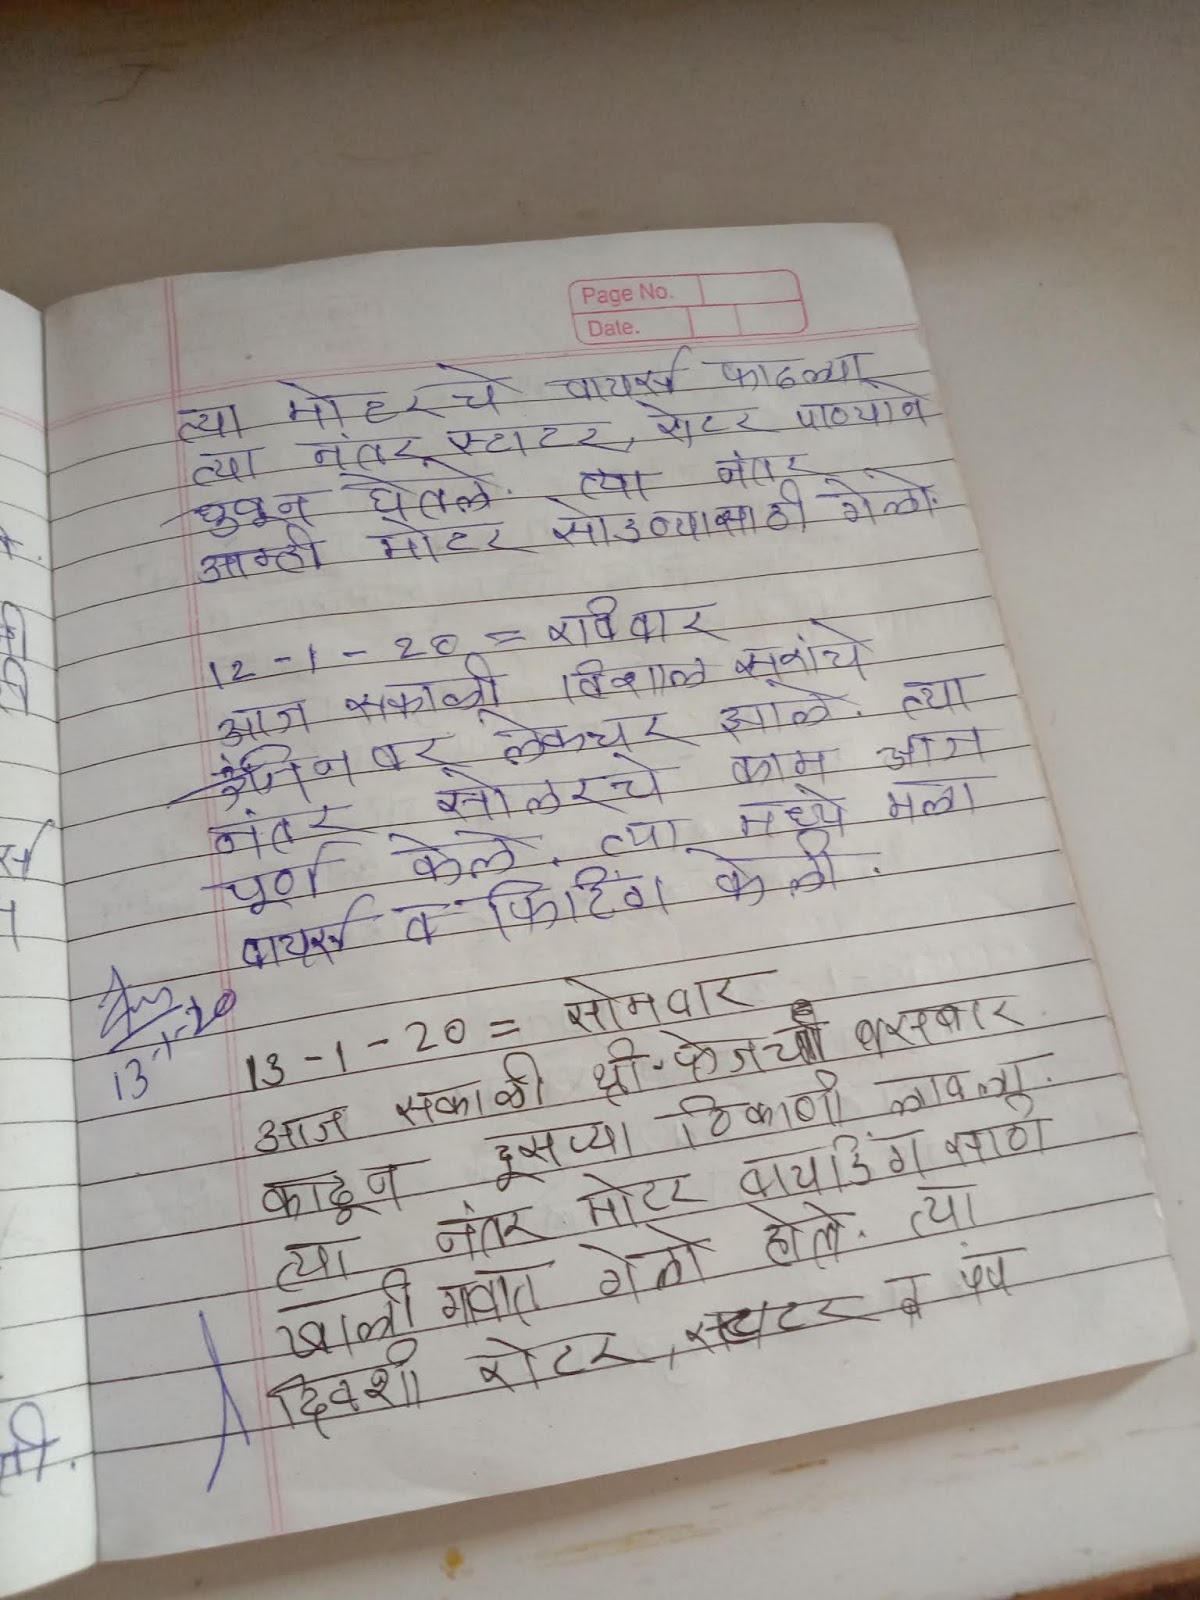 Page No.
Date.
त्या मोटरचे वायर्स काढल्या
त्या नंतर स्टाटर, रोटर पाण्याने
धुवून घेतले. त्या नंतर
आम्ही मोटर सोडण्यासाठी गेलो.
12-1-20 = रविवार
आज सकाळी विशाल सरांचे
इंजिन वर लेक्चर झाले. त्या
नंतर सोलरचे काम आज
पूर्ण केले. त्या मध्ये मला
वायर्स व फिटिंग केली.
13-1-20
13-1-20 = सोमवार
आज सकाळी थ्री-फेजचे बसबार
काढून दूसऱ्या ठिकाणी लावला.
त्या नंतर मोटर वायडिंग साठी
खाली गवात गेलो होले. त्या
दिवशी रोटर, स्टाटर व पंप